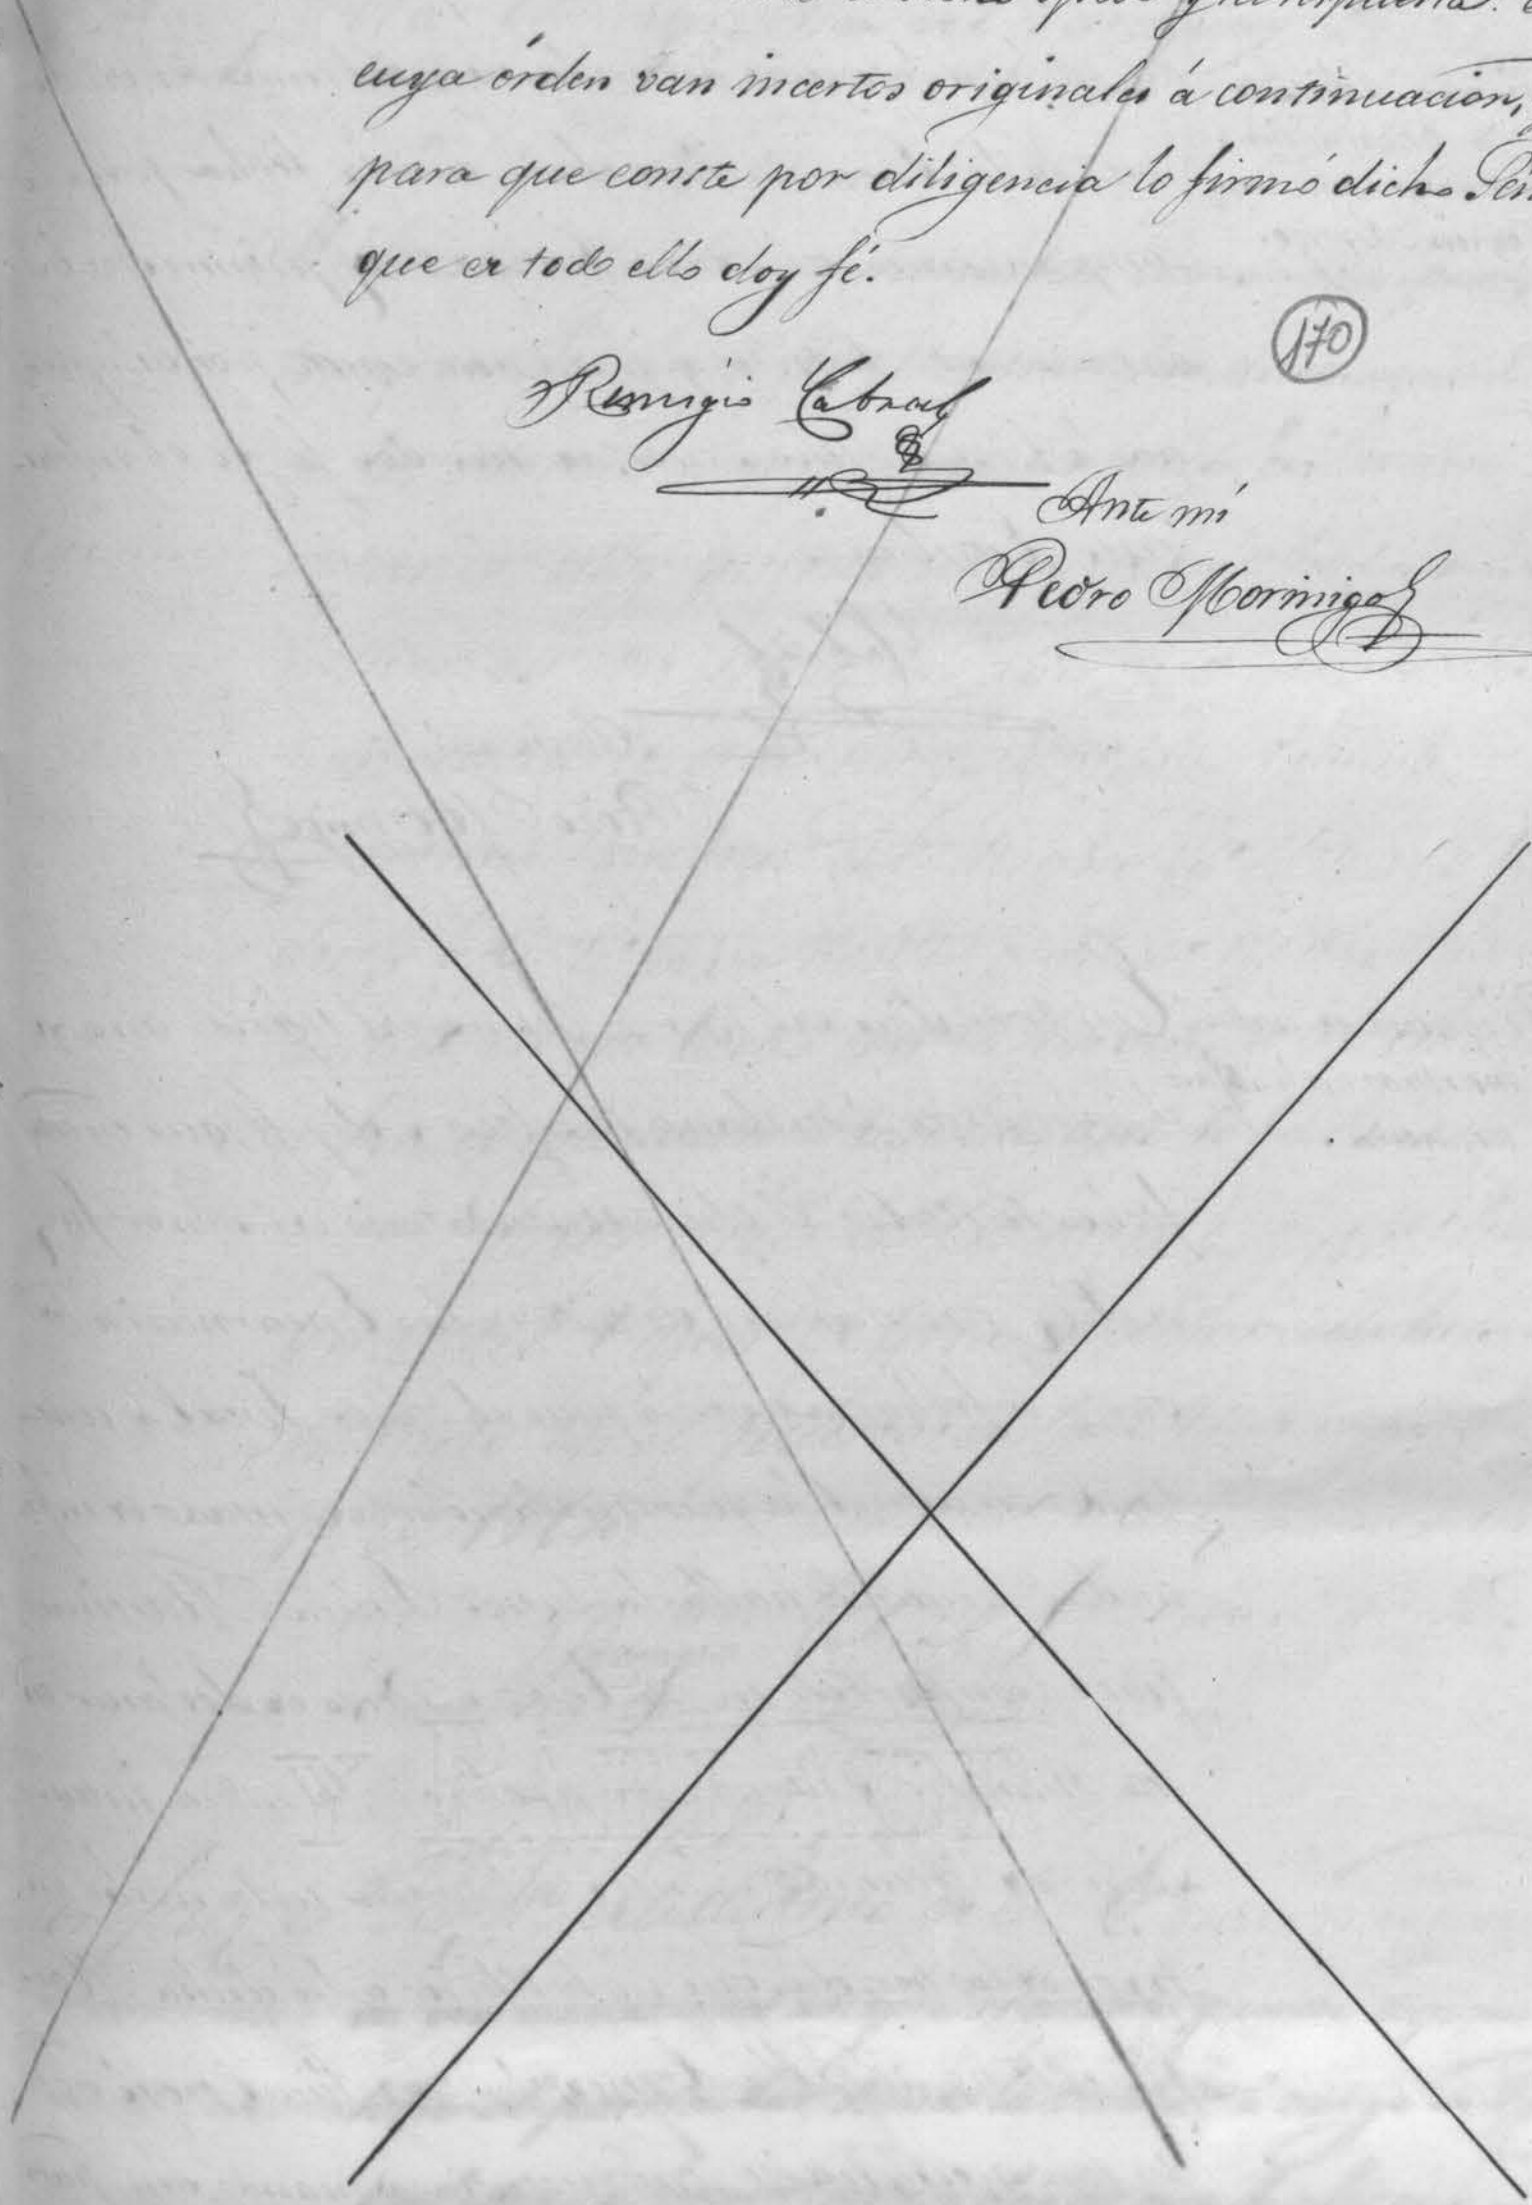 cuya órden van incertos originales á continuacion,
para que conste por diligencia lo firmó dicho
que er todo ello doy fé.
170
Remigio Cabral
Ante mí
Pedro Morinigo